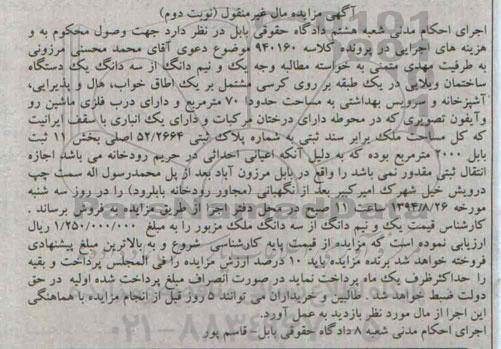 آگهی مزایده مال غیرمنقول (نوبت دوم)
اجرای احکام مدنی شعبه هشتم دادگاه حقوقی بابل در نظر دارد جهت وصول محکوم به و
هزینه های اجرایی در پرونده کلاسه ۹۴۰۱۶۰ موضوع دعوی آقای محمد محسنی مرزونی
به طرفیت مهدی متمنی به خواسته مطالبه وجه یک و نیم دانگ از سه دانگ یک دستگاه
ساختمان ویلایی در یک طبقه بر روی کرسی مشتمل بر یک اطاق خواب، هال و پذیرایی،
آشپزخانه و سرویس بهداشتی به مساحت حدودا ۷۰ مترمربع و دارای درب فلزی ماشین رو
وآیفون تصویری که در محوطه دارای درختان مرکبات و دارای یک انباری با سقف ایرانیت
که کل مساحت ملک برابر سند ثبتی به شماره پلاک ثبتی ۵۲/۲۶۶۴ اصلی بخش ۱۱ ثبت
بابل ۲۰۰۰ مترمربع بوده که به دلیل آنکه اعیانی احداثی در حریم رودخانه می باشد اجازه
انتقال ثبتی مقدور نمی باشد را واقع در بابل مرزون آباد بعد از پل محمدرسول اله سمت چپ
درویش خیل شهرک امیرکبیر بعد از نگهبانی (مجاور رودخانه بابلرود) را در روز سه شنبه
مورخه ۱۳۹۴/۸/۲۶ ساعت ۱۱ صبح در محل دفتر اجرا از طریق مزایده به فروش برساند .
کارشناس قیمت یک و نیم دانگ از سه دانگ ملک مزبور را به مبلغ ۱/۲۵۰/۰۰۰/۰۰۰ ریال
ارزیابی نموده است که مزایده از قیمت پایه کارشناسی شروع و به بالاترین مبلغ پیشنهادی
فروخته خواهد شد برنده مزایده باید ۱۰ درصد ارزش مزایده را فی المجلس پرداخت و بقیه
را حداکثرظرف یک ماه پرداخت نماید در صورت انصراف مبلغ پرداخت شده اولیه در حق
دولت ضبط خواهد شد . طالبین و خریداران می توانند ۵ روز قبل از انجام مزایده با هماهنگی
این اجرا از مال مورد نظر بازدید به عمل آورد.
اجرای احکام مدنی شعبه ۸ دادگاه حقوقی بابل - قاسم پور